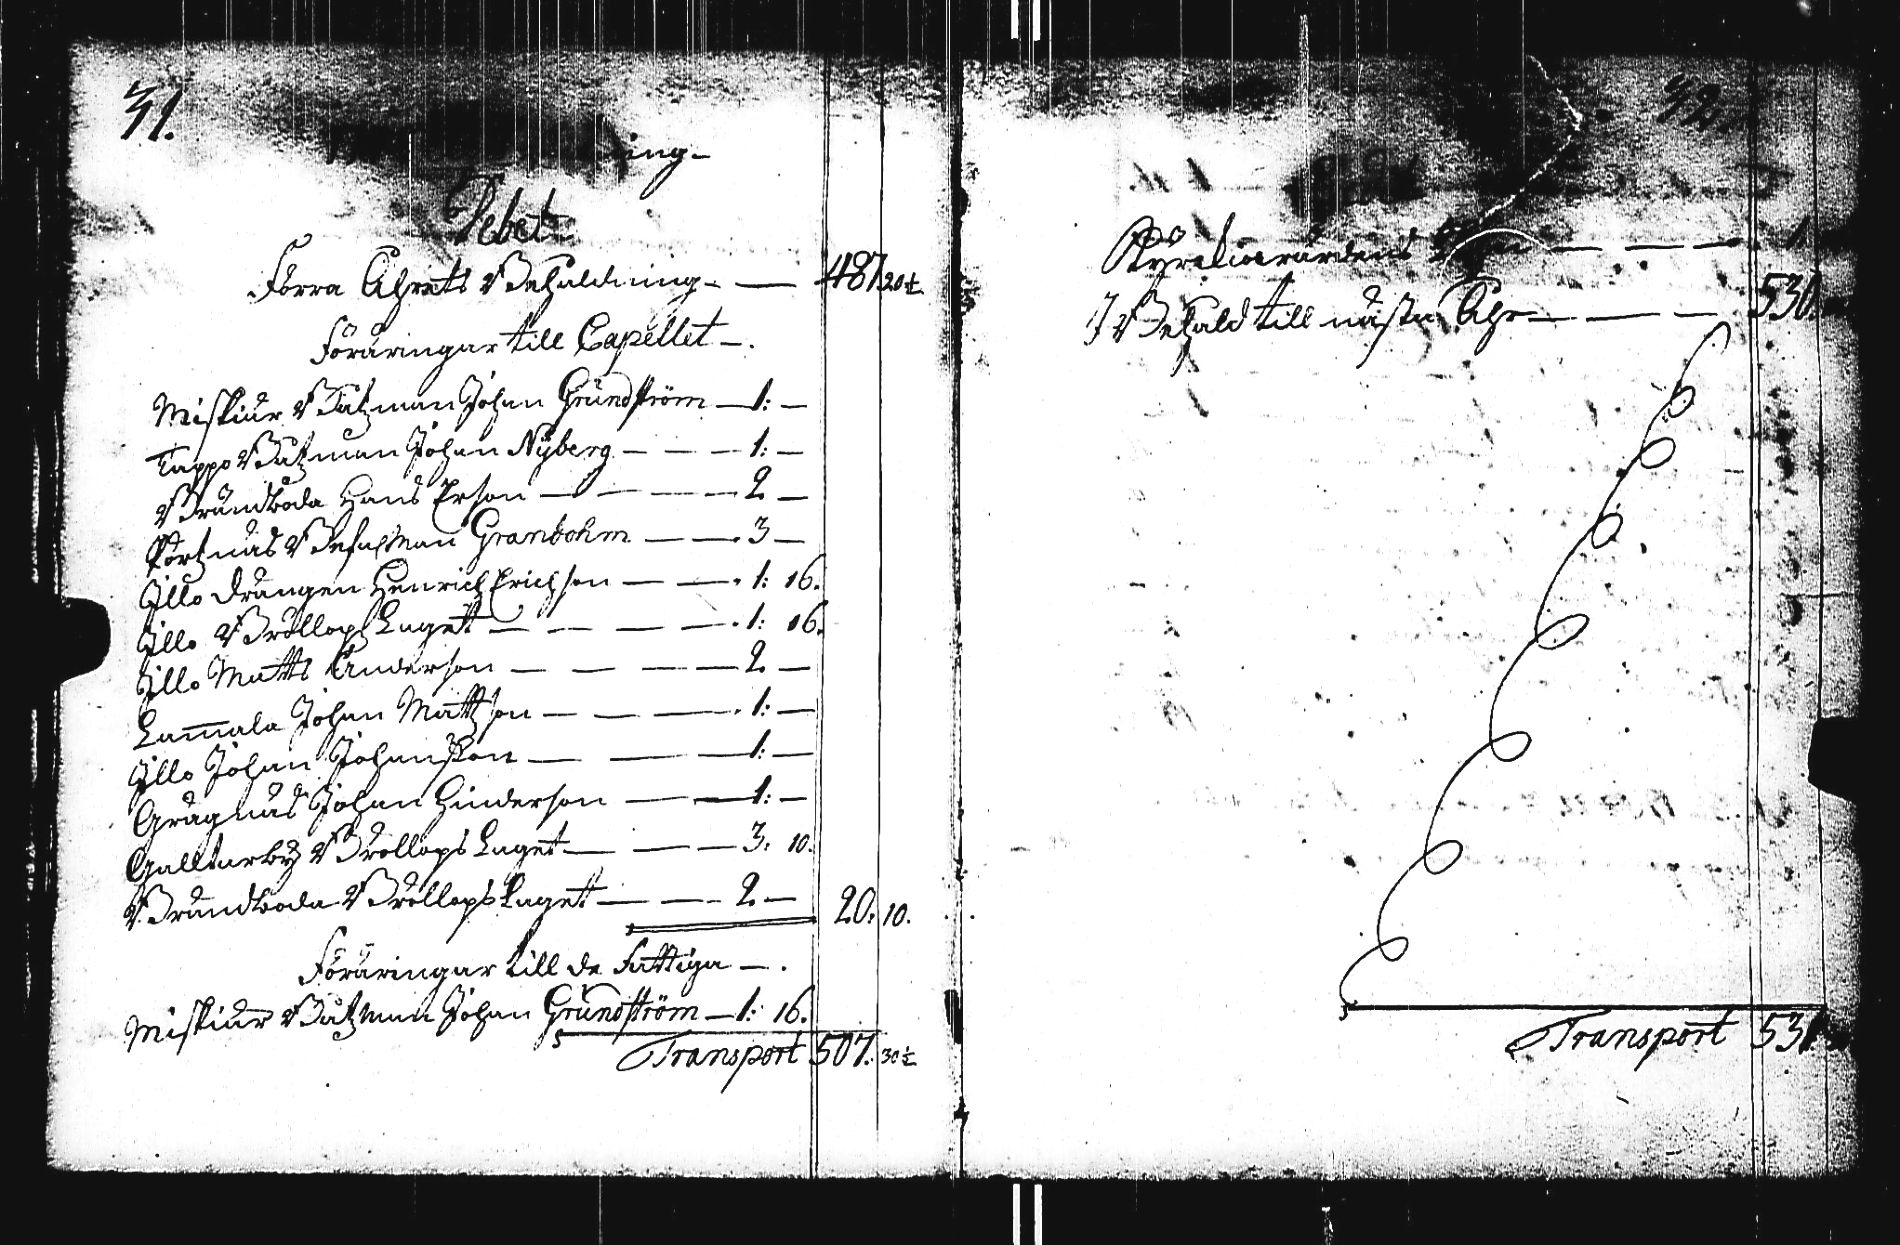 31.
ing
Debet
Förra Åhrets Behåldning 487 20½
Föräringar till Capellet
Miskiär Båtzman Johan Grundström 1: —
Tappo Båtzman Johan Nyberg 1: —
Brändboda Hans Erson 2 —
Befalsman Granbohm 3 —
Jllo drängen Henrich Erichson 1: 16.
Jllo Bröllops Laget 1: 16.
Jllo Matts Anderson 2 —
Lam̅ala Johan Mattson 1: —
Jllo Johan Johansson 1: —
Johan Hinderson 1: —
Galtarby Bröllops Laget 3. 10.
Brändboda Bröllops Laget 2 — 20: 10.
Föräringar till de Fattiga
Miskiär Båtzman Johan Grundström 1: 16.
Transport 507. 30½
32.
Kyrckiovärdens 1
J Behåld till nästa Åhr 530
Transport 531